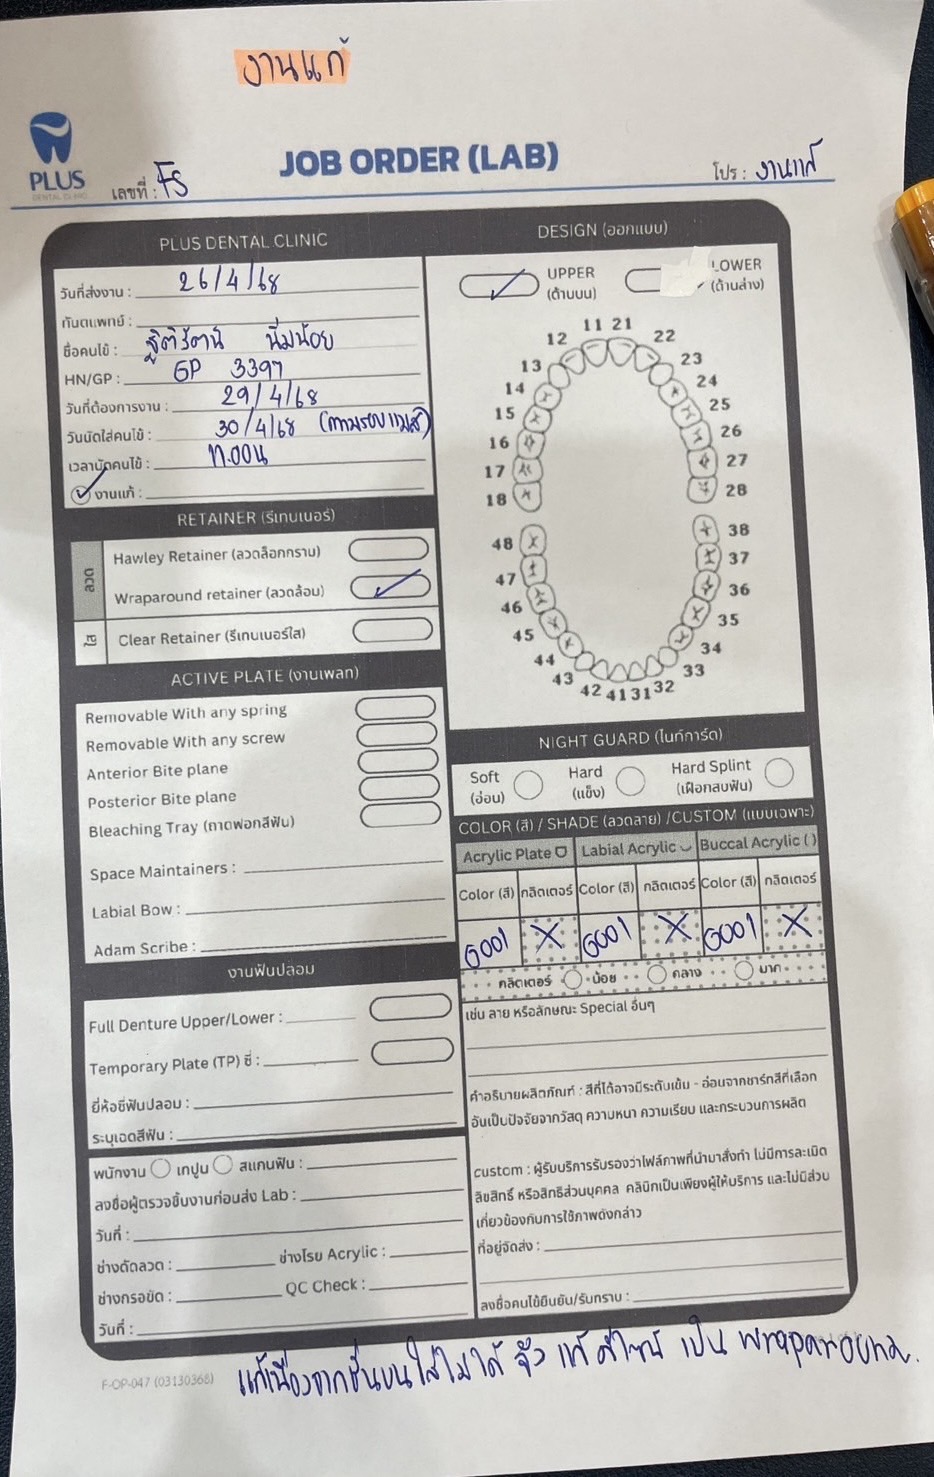 งานแก้
PLUS
DENTAL CLINIC
เลขที่ : FS
JOB ORDER (LAB)
โปร : งานแก้
PLUS DENTAL CLINIC
วันที่ส่งงาน : 26/4/68
ทันตแพทย์ :
ชื่อคนไข้ : ฐิติรัตน์ นิ่มน้อย
HN/GP : GP 3397
วันที่ต้องการงาน : 29/4/68
วันนัดใส่คนไข้ : 30/4/68 (ตามรอบแมส)
เวลานัดคนไข้ : ก.ออน
งานแก้ :
RETAINER (รีเทนเนอร์)
ลวด
Hawley Retainer (ลวดล็อกกราม)
Wraparound retainer (ลวดล้อม)
ใส
Clear Retainer (รีเทนเนอร์ใส)
ACTIVE PLATE (งานเพลท)
Removable With any spring
Removable With any screw
Anterior Bite plane
Posterior Bite plane
Bleaching Tray (ถาดฟอกสีฟัน)
Space Maintainers :
Labial Bow :
Adam Scribe :
งานฟันปลอม
Full Denture Upper/Lower :
Temporary Plate (TP) ซี่ :
ยี่ห้อซี่ฟันปลอม :
ระบุเฉดสีฟัน :
พนักงาน เทปูน สแกนฟัน :
ลงชื่อผู้ตรวจชิ้นงานก่อนส่ง Lab :
วันที่ :
ช่างดัดลวด : ช่างโรย Acrylic :
ช่างกรอขัด : QC Check :
วันที่ :
DESIGN (ออกแบบ)
UPPER
(ด้านบน)
LOWER
(ด้านล่าง)
11 21
12 22
13 23
14 24
15 25
16 26
17 27
18 28
48 38
47 37
46 36
45 35
44 34
43 33
42 41 31 32
NIGHT GUARD (ไนท์การ์ด)
Soft
(อ่อน)
Hard
(แข็ง)
Hard Splint
(เฝือกสบฟัน)
COLOR (สี) / SHADE (ลวดลาย) /CUSTOM (แบบเฉพาะ)
Acrylic Plate Labial Acrylic Buccal Acrylic ( )
Color (สี) กลิตเตอร์ Color (สี) กลิตเตอร์ Color (สี) กลิตเตอร์
G001 X G001 X G001 X
กลิตเตอร์ น้อย กลาง มาก
เช่น ลาย หรือลักษณะ Special อื่นๆ
คำอธิบายผลิตภัณฑ์ : สีที่ได้อาจมีระดับเข้ม - อ่อนจากชาร์ทสีที่เลือก
อันเป็นปัจจัยจากวัสดุ ความหนา ความเรียบ และกระบวนการผลิต
custom : ผู้รับบริการรับรองว่าไฟล์ภาพที่นำมาสั่งทำ ไม่มีการละเมิด
ลิขสิทธิ์ หรือสิทธิส่วนบุคคล คลินิกเป็นเพียงผู้ให้บริการ และไม่มีส่วน
เกี่ยวข้องกับการใช้ภาพดังกล่าว
ที่อยู่จัดส่ง :
ลงชื่อคนไข้ยืนยัน/รับทราบ :
F-OP-047 (03130368)
แก้เนื่องจากชิ้นบนใส่ไม่ได้ จึง แก้ ดีไซน์ เป็น wraparound.